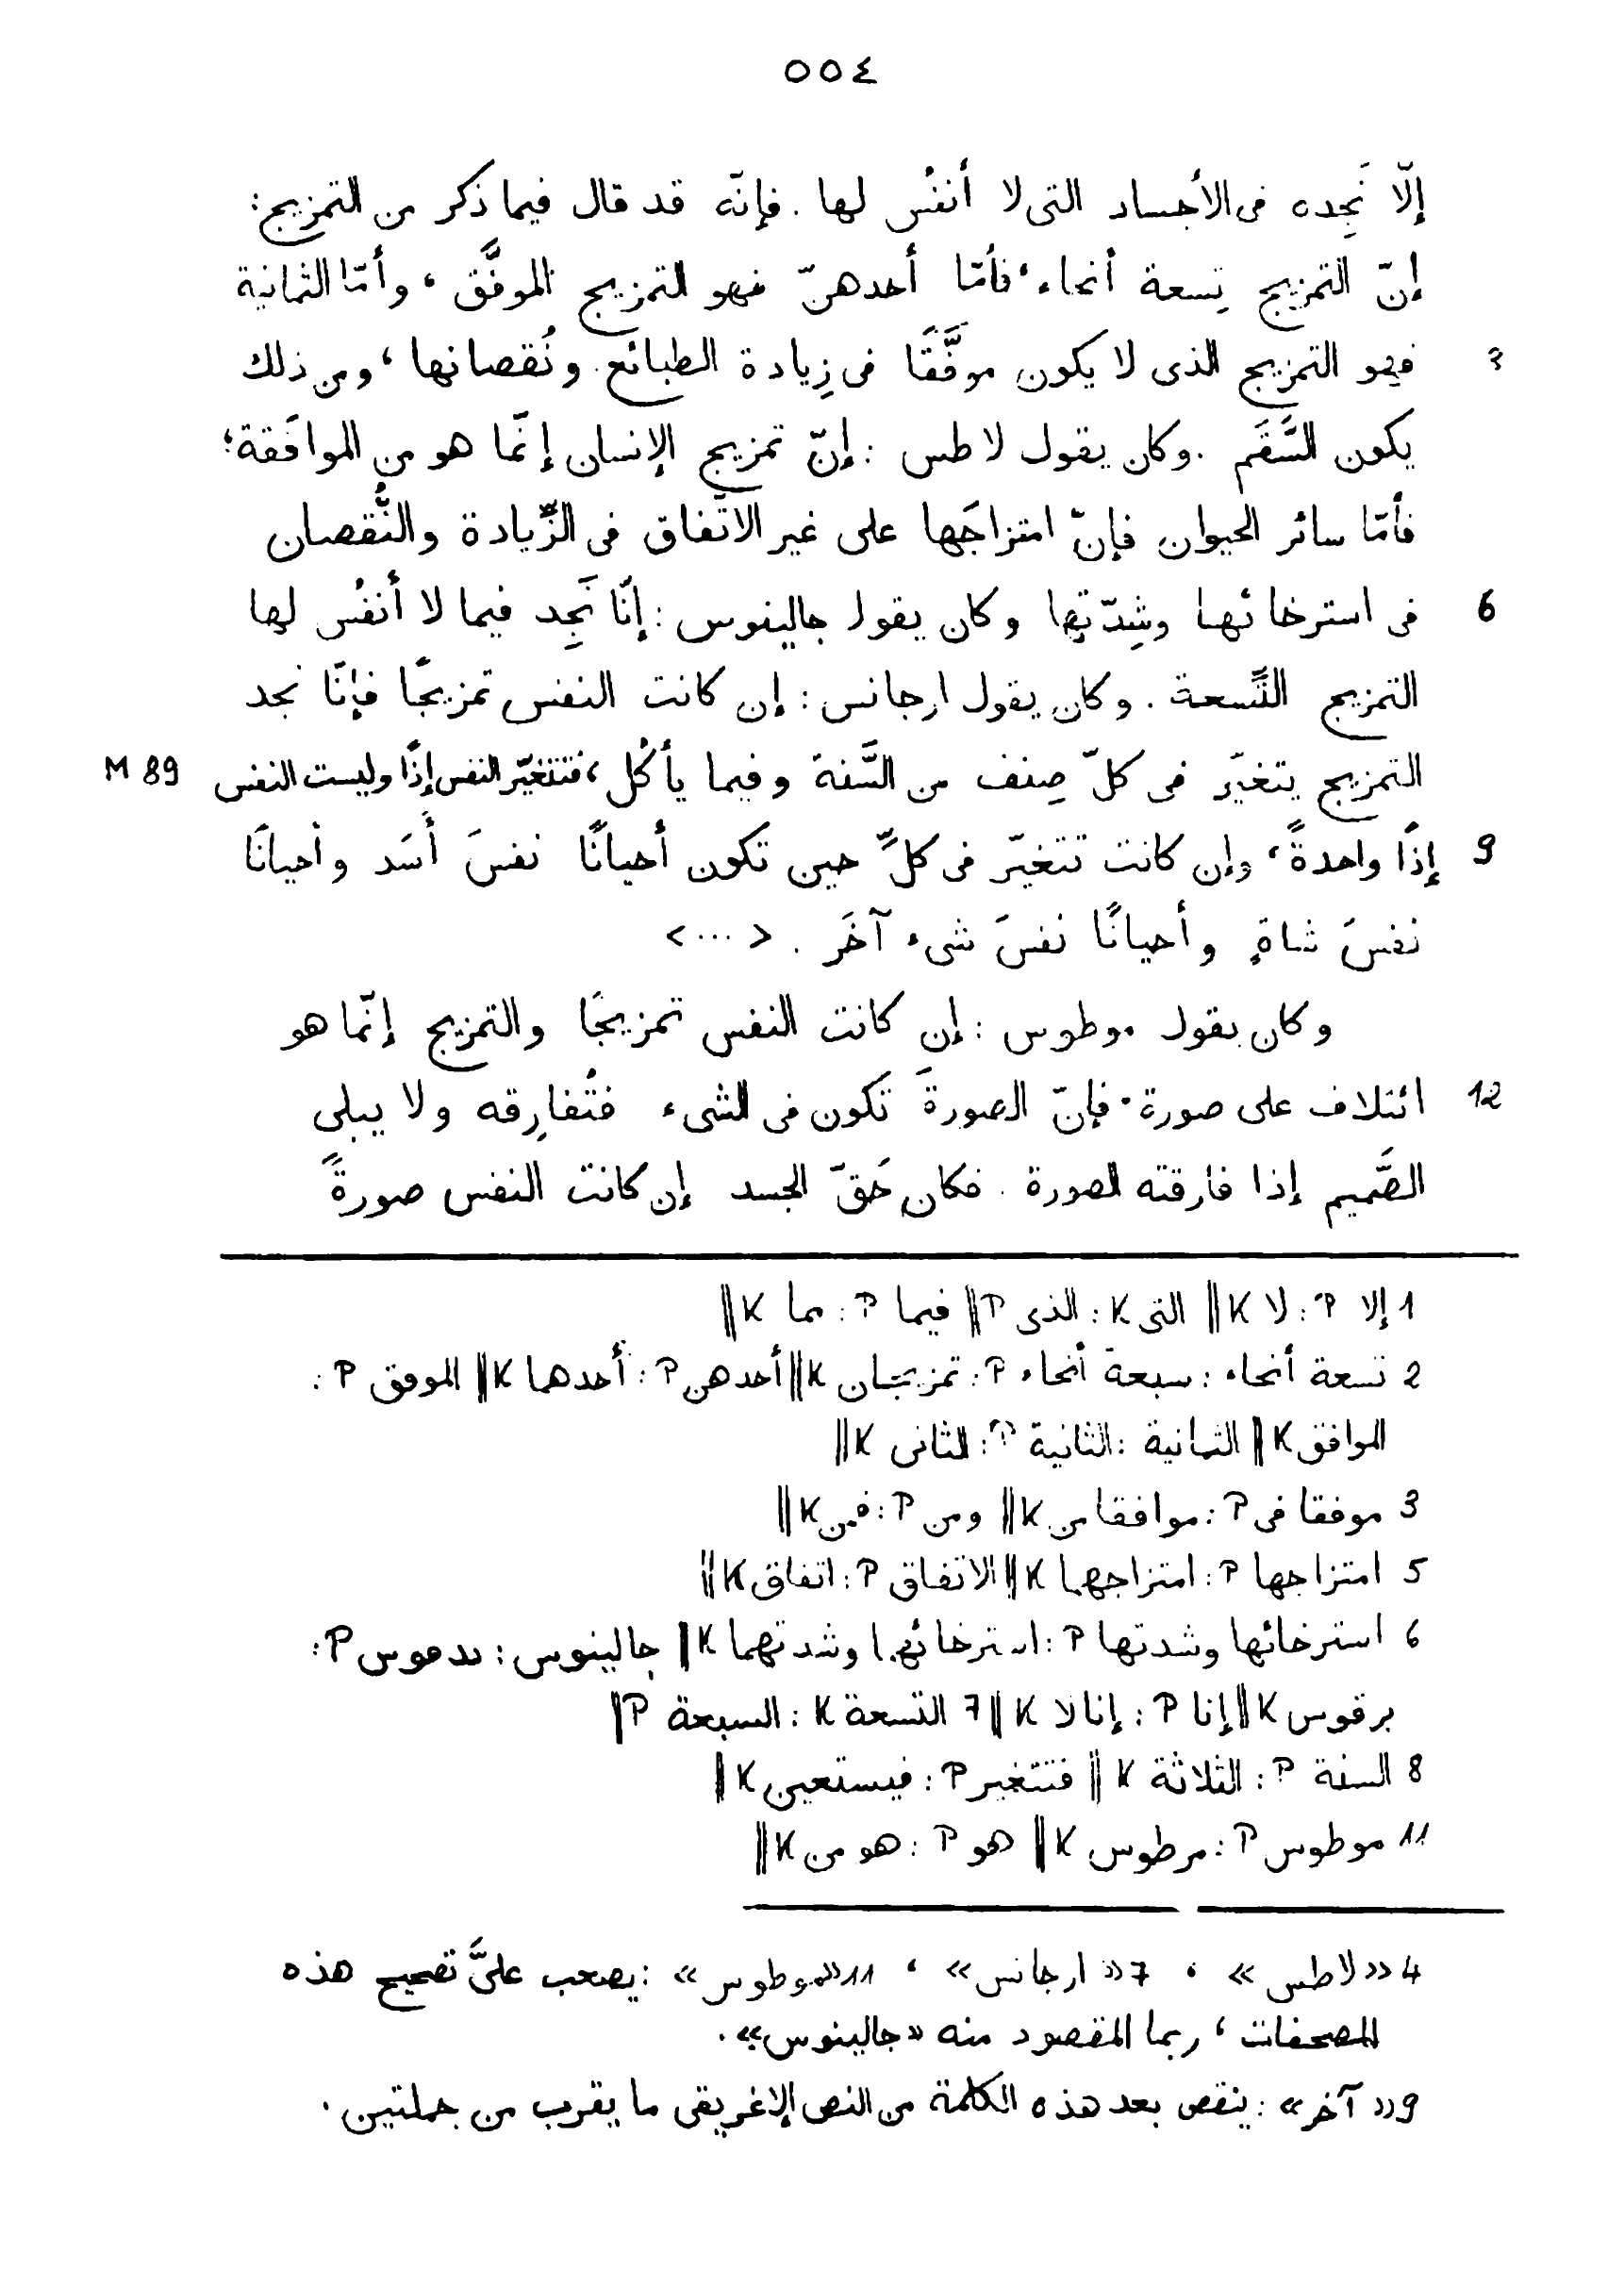 ٥٥٤
إلّا نَجِده فى الأجساد التى لا أنفُس لها . فإنّه قد قال فيما ذكر من التمزيج:
إنّ التمزيج تِسعة أنحاء، فأمّا أحدهنّ فهو التمزيج الموفَّق ، وأمّا الثمانية
3 فهو التمزيج الذى لا يكون موفَّقًا فى زِيادة الطبائع ونُقصانها ، ومن ذلك
يكون السَّقَم . وكان يقول لاطس : إنّ تمزيج الإنسان إنّما هو من الموافَقة؛
فأمّا سائر الحيوان فإنّ امتزاجَها على غير الاتّفاق فى الزِّيادة والنُّقصان
6 فى استرخائها وشِدّتِها وكان يقول جالينوس : إنّا نَجِد فيما لا أنفُس لها
التمزيج التِّسعة . وكان يقول ارجانس : إن كانت النفس تمزيجًا فإنّا نجد
التمزيج يتغيّر فى كلّ صِنف من السَّنة وفيما يأكُل ، فتتغيّر النفس إذًا وليست النفس M 89
9 إذًا واحدةً ، وإن كانت تتغيّر فى كلِّ حين تكون أحيانًا نفسَ أسَد وأحيانًا
نفسَ شاةٍ وأحيانًا نفسَ شىء آخَر . < ... >
وكان يقول موطوس : إن كانت النفس تمزيجًا والتمزيج إنّما هو
12 ائتلاف على صورة . فإنّ الصورةَ تكون فى الشىء فتُفارِقه ولا يبلى
الصَّميم إذا فارقته الصورة . فكان حَقّ الجسد إن كانت النفس صورةً
1 إلا P : لا K || التى K : الذى P || فيما P : مما K ||
2 تسعة أنحاء : سبعة أنحاء P : تمزيجان K || أحدهن P : أحدهما K || الموفق P :
الموافق K || الثمانية : الثانية P : الثانى K ||
3 موفقا فى P : موافقا من K || ومن P : فمن K ||
5 امتزاجها P : امتزاجهما K || الاتفاق P : اتفاق K ||
6 استرخائها وشدتها P : استرخائهما وشدتهما K || جالينوس : ىدموس P :
برقوس K || إنا P : إنا لا K || 7 التسعة K : السبعة P ||
8 السنة P : الثلاثة K || فتتغير P : فيستعين K ||
11 موطوس P : مرطوس K || هو P : هو من K ||
4 «لاطس» ، 7 «ارجانس» ، 11 «موطوس» : يصعب علىَّ تصحيح هذه
المصحفات ، ربما المقصود منه «جالينوس» .
9 «آخر» : ينقص بعد هذه الكلمة من النص الإغريقى ما يقرب من جملتين .